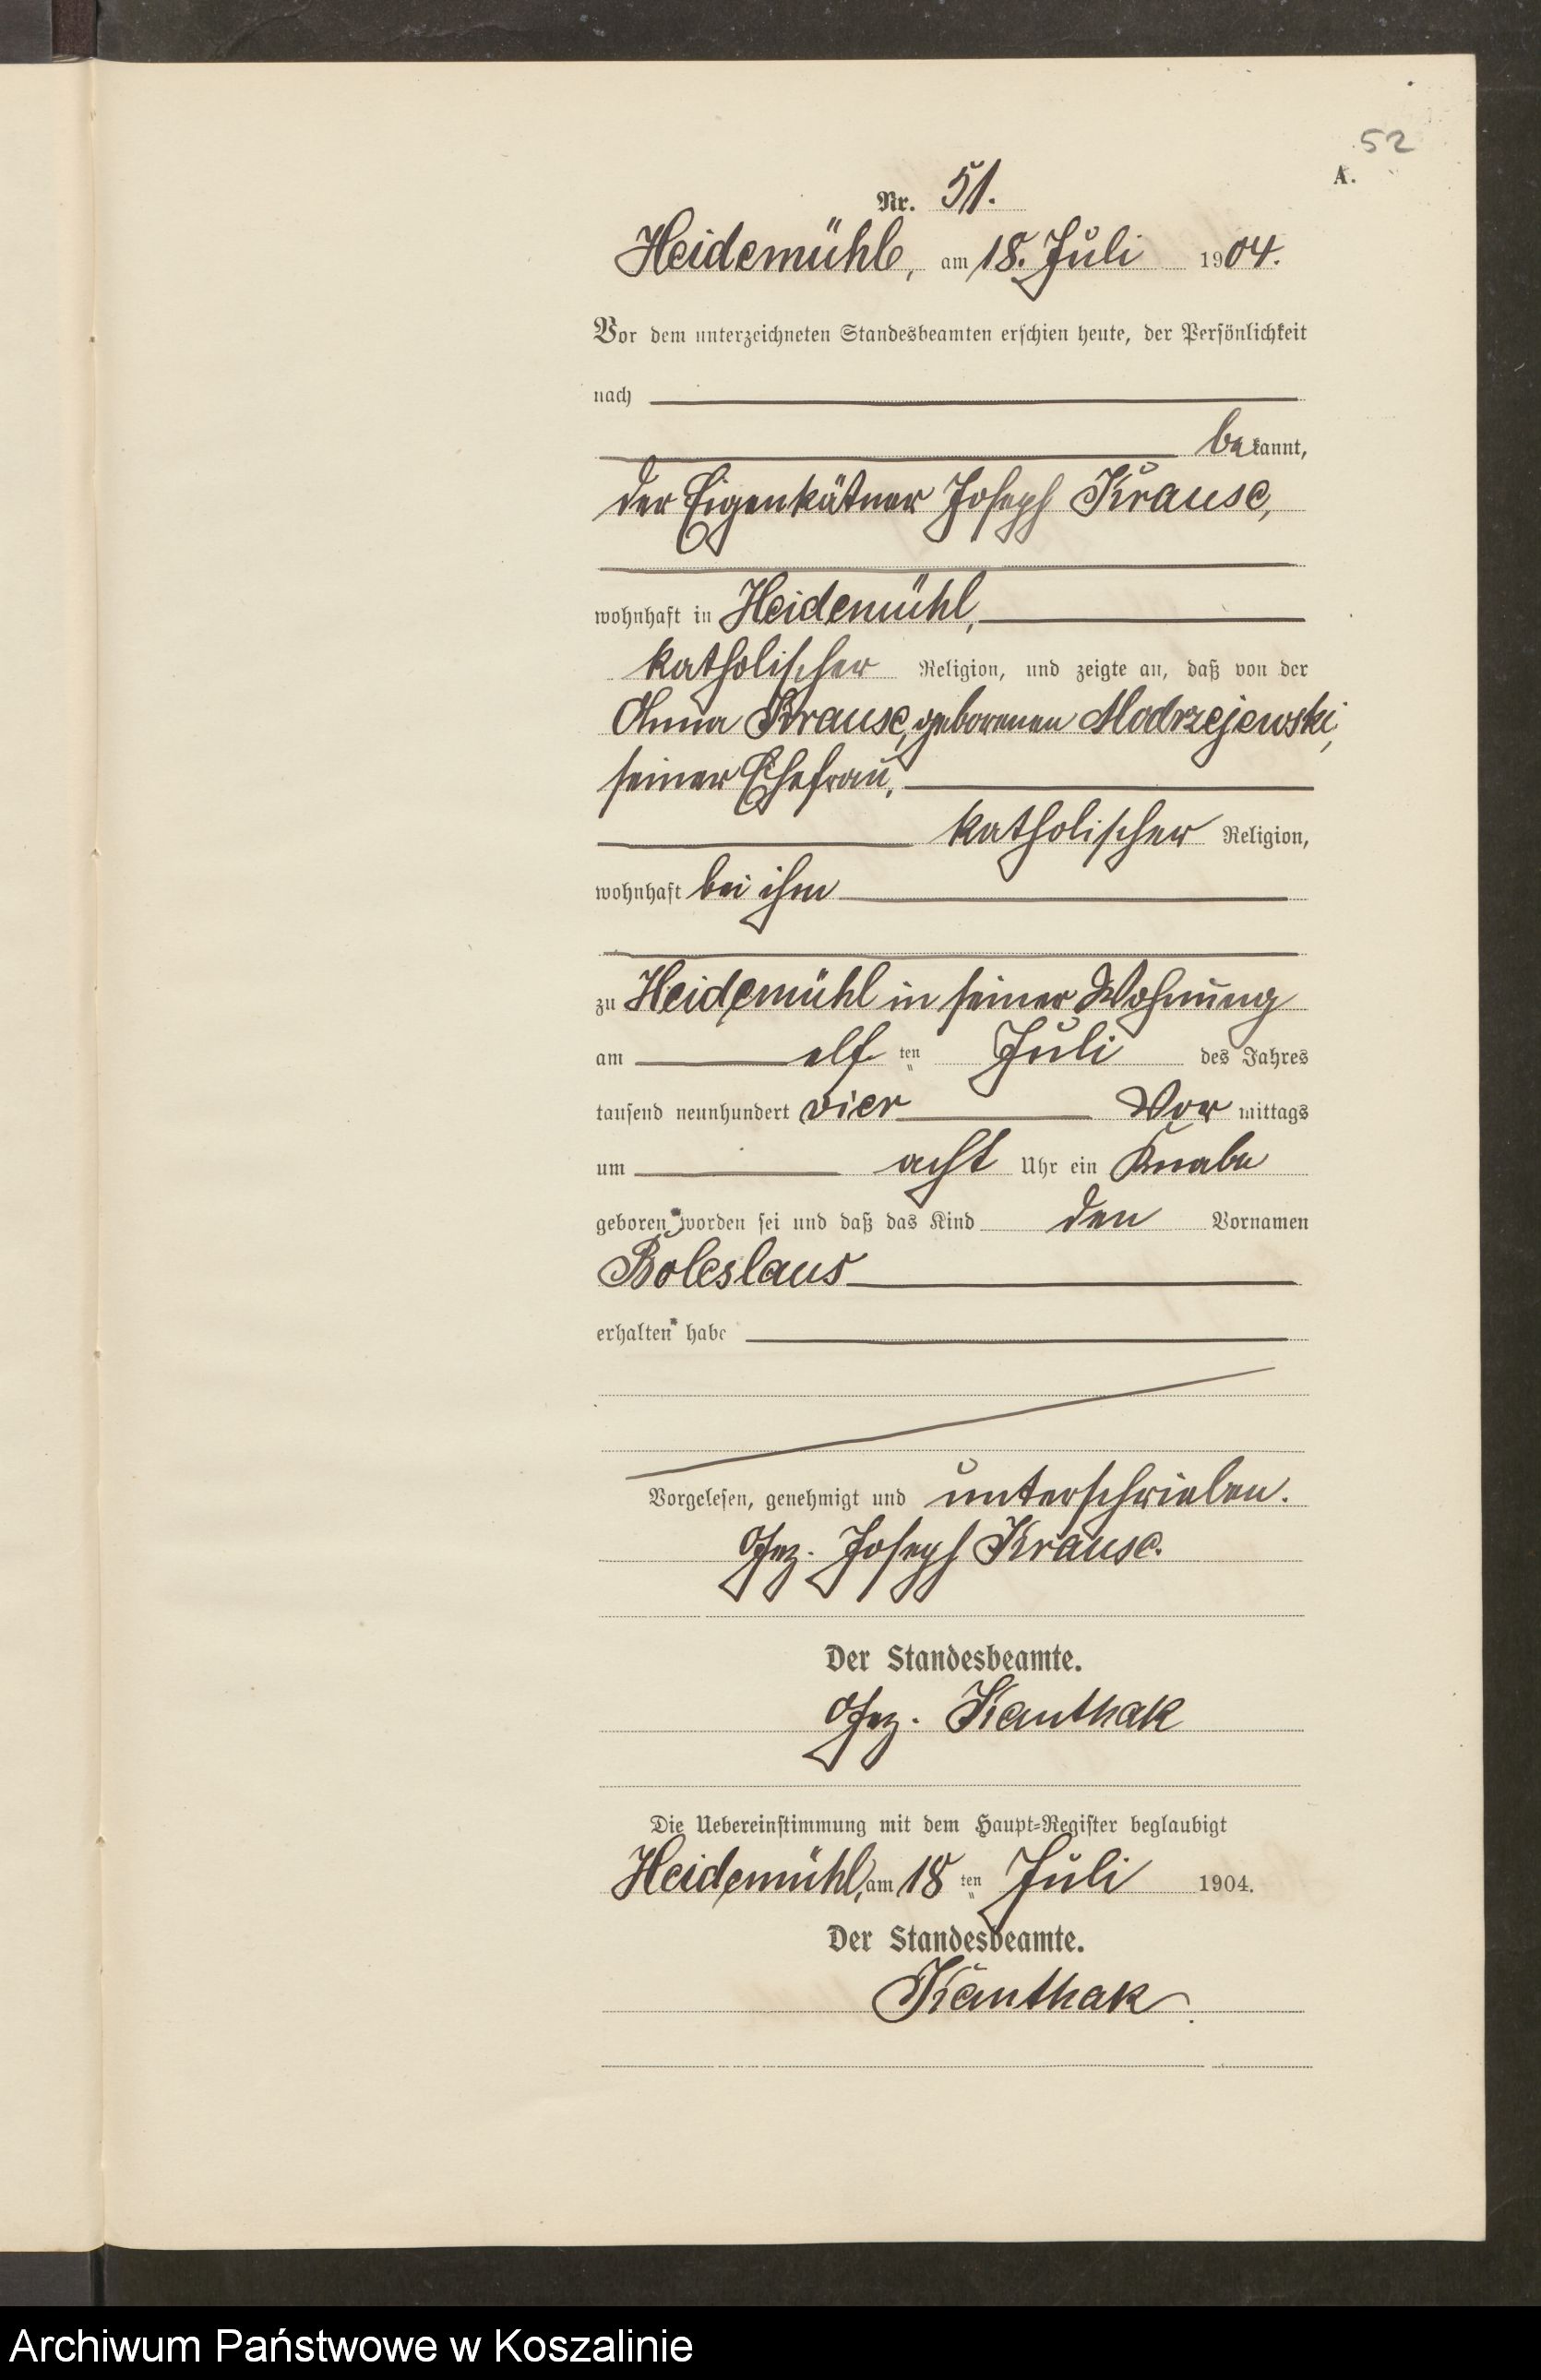 52
A.
Nr. 51.
Heidemühl, am 18. Juli 1904.
Vor dem unterzeichneten Standesbeamten erschien heute, der Persönlichkeit
nach
bekannt,
der Eigenkätner Joseph Krause,
wohnhaft in Heidemühl,
katholischer Religion, und zeigte an, daß von der
Anna Krause, geborenen Modrzejewski,
seiner Ehefrau,
katholischer Religion,
wohnhaft bei ihm
zu Heidemühl in seiner Wohnung
am elf ten Juli des Jahres
tausend neunhundert vier Vor mittags
um acht Uhr ein Knabe
geboren worden sei und daß das Kind den Vornamen
Boleslaus
erhalten habe
Vorgelesen, genehmigt und unterschrieben.
Gez. Joseph Krause.
Der Standesbeamte.
Gez. Kanthak
Die Uebereinstimmung mit dem Haupt-Register beglaubigt
Heidemühl, am 18 ten Juli 1904.
Der Standesbeamte.
Kanthak
Archiwum Państwowe w Koszalinie